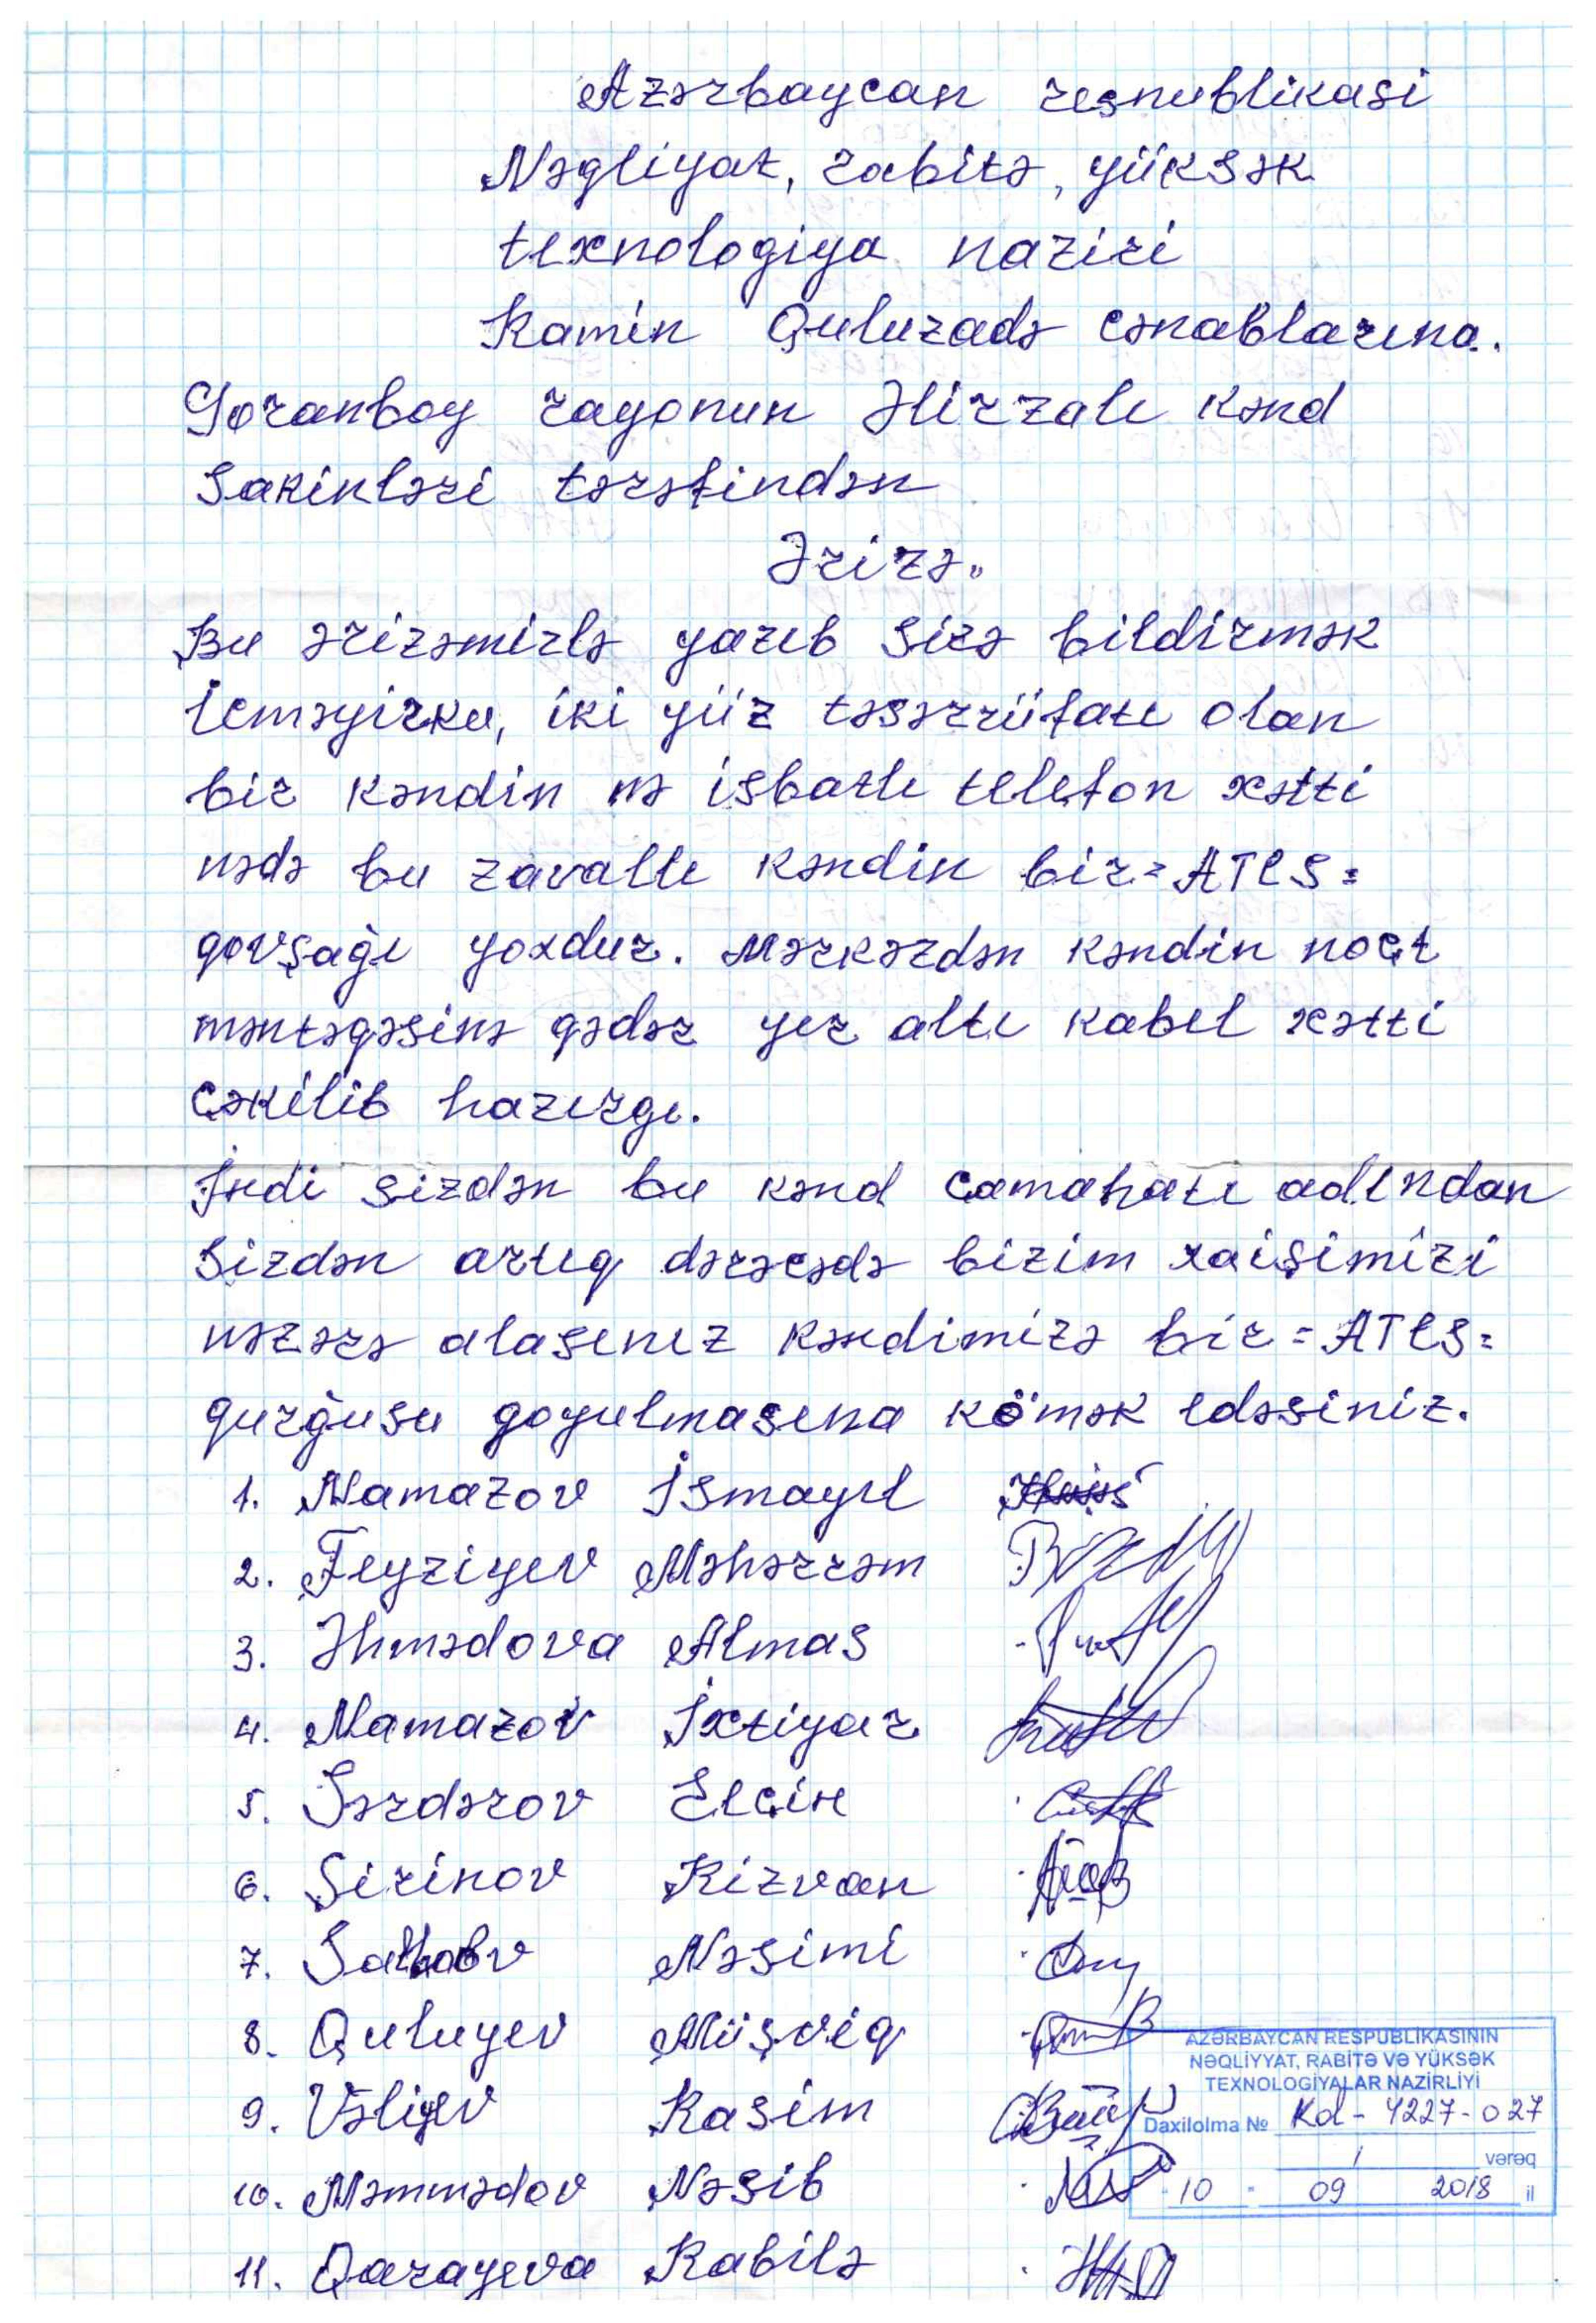 Azərbaycan respublikasi
Nəgliyat, rabitə, yüksək
texnologiya naziri
Ramin Quluzadə cənablarına.
Goranboy rayonun Əlirzalı kənd
Sakinləri tərəfindən
Ərizə.
Bu ərizəmizlə yazıb sizə bildirmək
iсməyirku, iki yüz təsərrüfatı olan
bir kəndin nə işbatlı telefon xətti
nədə bu zavallı kəndin bir=ATES=
qovşağı yoxdur. Mərkəzdən kəndin poçt
məntəgəsinə qədər yer altı kabel xətti
çəkilib hazırgı.
İndi sizdən bu kənd camahatı adından
Sizdən artıq dərəcədə bizim xaişimizi
nəzərə alasınız kəndimizə bir=ATES=
qurğusu goyulmasına kömək edəsiniz.
1. Namazov İsmayıl
2. Feyziyev Məhərrəm
3. Əhmədova Almas
4. Namazov İxtiyar
5. Sərdərov Elçin
6. Şirinov Rizvan
7. Nəsimi
8. Quluyev Müşviq
9. Vəliyev Rasim
10. Məmmədov Nəsib
11. Qarayeva Rabilə
AZƏRBAYCAN RESPUBLİKASININ
NƏQLİYYAT, RABİTƏ VƏ YÜKSƏK
TEXNOLOGİYALAR NAZİRLİYİ
Daxilolma № Kol-4227-027
1 vərəq
10 09 2018 il